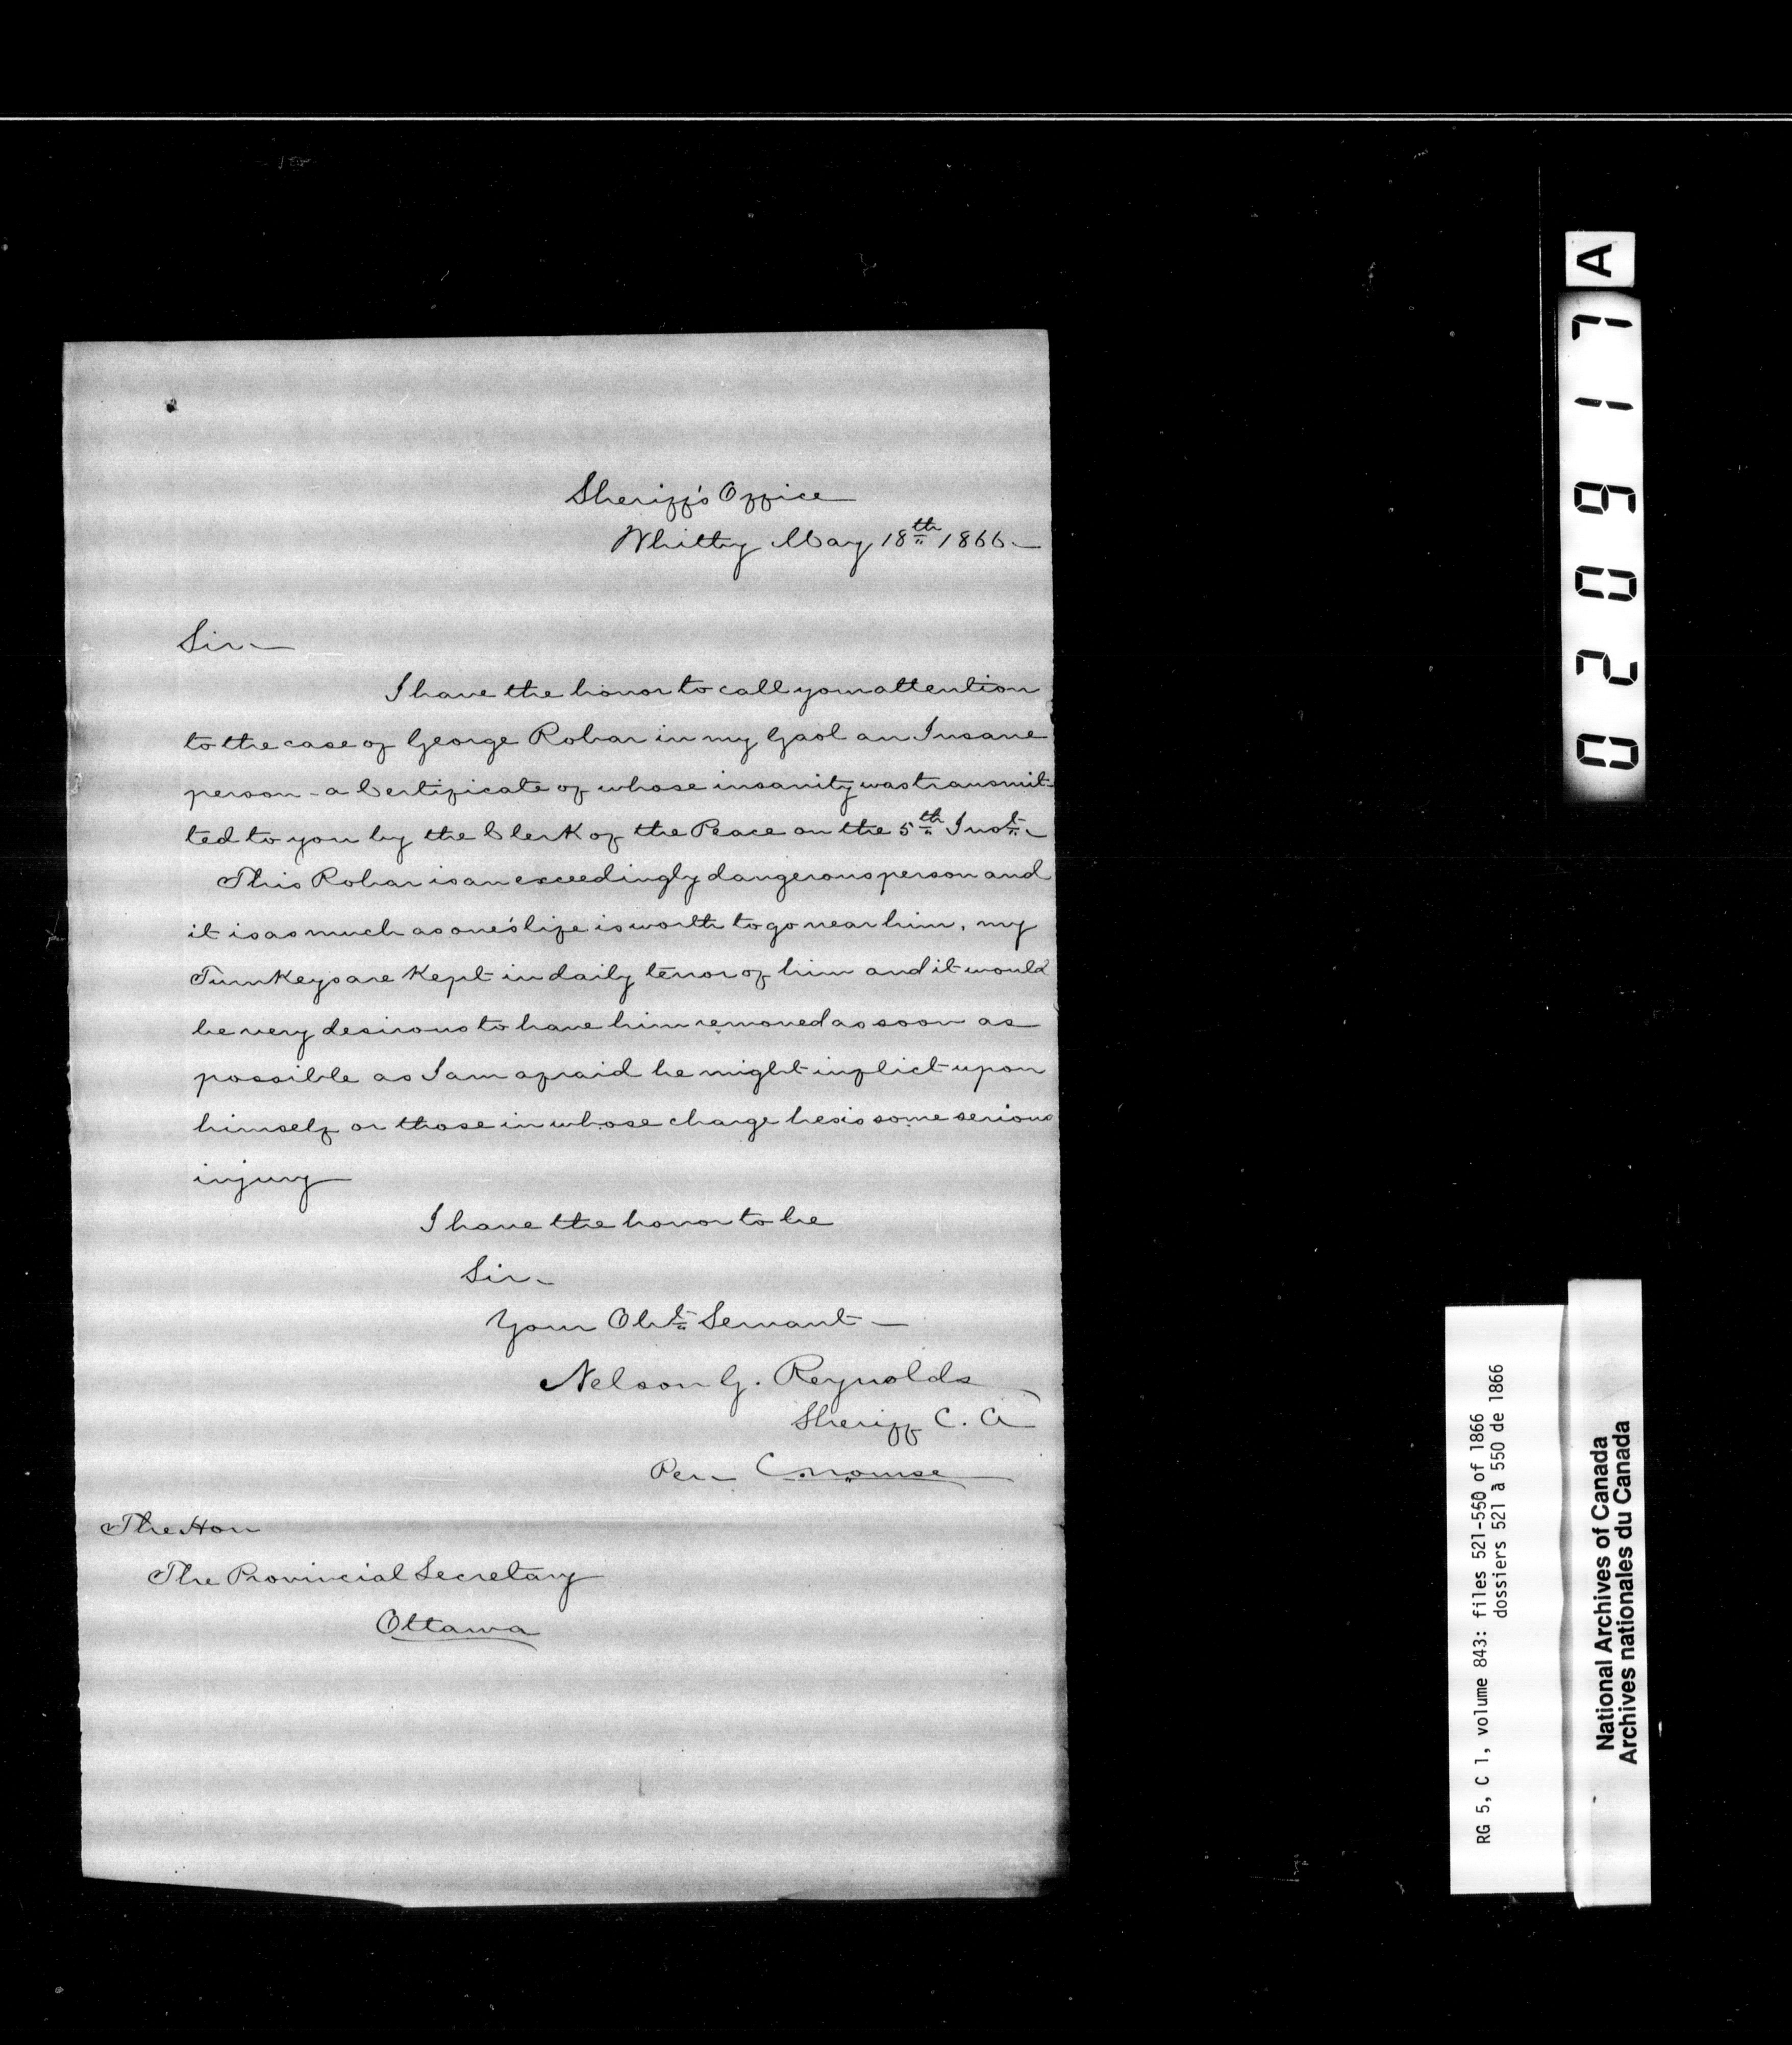 Sheriff's Office
Whitby May 18th 1866
Sir
I have the honor to call your attention
to the case of George Robar in my Gaol an Insane
person - a Certificate of whose insanity was transmit-
ted to you by the Clerk of the Peace on the 5th Inst.
This Robar is an exceedingly dangerous person and
it is as much as one's life is worth to go near him, my
Turnkeys are Kept in daily terror of him and it would
be very desirous to have him removed as soon as
possible as I am afraid he might inflict upon
himself or those in whose charge he is some serious
injury
I have the honor to be
Sir
Your Obt. Servant
Nelson G. Reynolds
Sheriff C. O
Per C. Nourse
The Hon
The Provincial Secretary
Ottawa
020917 A
RG 5, C 1, volume 843: files 521-550 of 1866
dossiers 521 à 550 de 1866
National Archives of Canada
Archives nationales du Canada